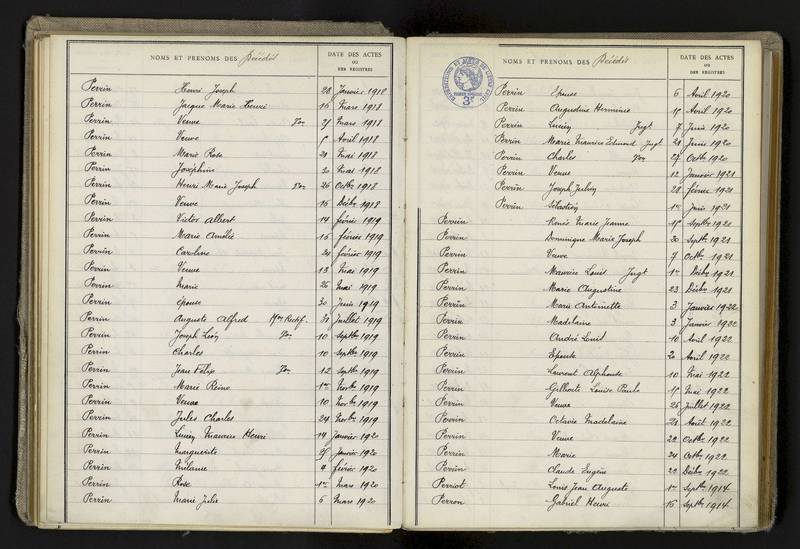 NOMS ET PRENOMS DES Décédés DATE DES ACTES
OU
DES REGISTRES
Perrin Henri Joseph 28 Janvier 1918
Perrin Jacques Marie Henri 16 Mars 1918
Perrin Veuve Von 25 Mars 1918
Perrin Veuve Avril 1918
Perrin Marie Rose 21 Mai 1918
Perrin Joséphine 20 Mai 1918
Perrin Henri Marie Joseph Von 26 Octbre 1918
Perrin Veuve 16 Décbre 1918
Perrin Victor Albert 14 février 1919
Perrin Marie Amélie 15 février 1919
Perrin Caroline 21 février 1919
Perrin Veuve 13 Mai 1919
Perrin Marie 26 Mai 1919
Perrin épouse 30 Juin 1919
Perrin Auguste Alfred Rectif. 31 Juillet 1919
Perrin Joseph Léon Von 10 Septbre 1919
Perrin Charles 10 Septbre 1919
Perrin Jean Félix Von 12 Septbre 1919
Perrin Marie Reine 1er Novbre 1919
Perrin Veuve 10 Novbre 1919
Perrin Jules Charles 24 Novbre 1919
Perrin Lucien Maurice Henri 14 Janvier 1920
Perrin Marguerite 25 Janvier 1920
Perrin Mélanie 9 février 1920
Perrin Rose 1er Mars 1920
Perrin Marie Julie 6 Mars 1920
NOMS ET PRENOMS DES Décédés DATE DES ACTES
OU
DES REGISTRES
Perrin Epouse 6 Avril 1920
Perrin Augustine Herminie 15 Avril 1920
Perrin Lucien Jugt 7 Juin 1920
Perrin Marie Maurice Edmond Jugt 21 Juin 1920
Perrin Charles Von 27 Octbre 1920
Perrin Veuve 12 Janvier 1921
Perrin Joseph Julien 28 février 1921
Perrin Sébastien 1er Juin 1921
Perrin Renée Marie Jeanne 15 Septbre 1921
Perrin Dominique Marie Joseph 20 Septbre 1921
Perrin Veuve 7 Octbre 1921
Perrin Maurice Louis Jugt 1er Décbre 1921
Perrin Marie Augustine 23 Décbre 1921
Perrin Marie Antoinette 3 Janvier 1922
Perrin Madeleine 3 Janvier 1922
Perrin André Louis 10 Avril 1922
Perrin Epouse 2 Avril 1922
Perrin Laurent Alphonse 10 Mai 1922
Perrin Gilberte Louise Paule 15 Mai 1922
Perrin Veuve 26 Juillet 1922
Perrin Octavie Madeleine 21 Août 1922
Perrin Veuve 22 Octbre 1922
Perrin Marie 24 Octbre 1922
Perrin Claude Eugène 22 Décbre 1922
Perriot Louis Jean Auguste 1er Septbre 1914
Perron Gabriel Henri 16 Septbre 1914